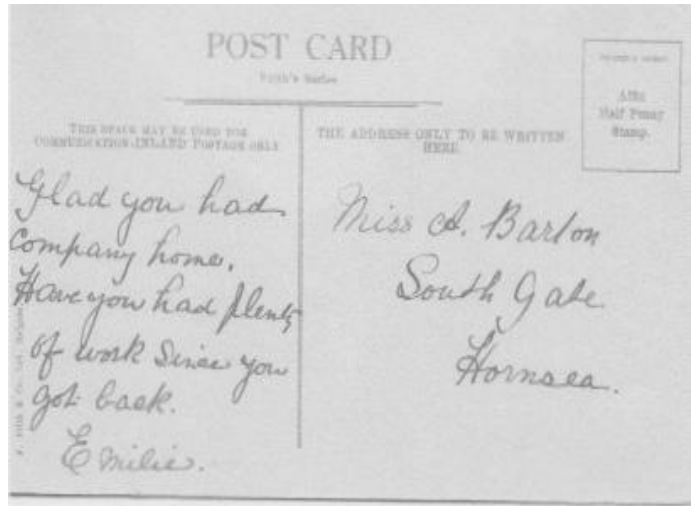 POST CARD
Frith's Series
THIS SPACE MAY BE USED FOR
COMMUNICATION INLAND POSTAGE ONLY
THE ADDRESS ONLY TO BE WRITTEN
HERE
Affix
Half Penny
Stamp.
Glad you had
company home.
Have you had plenty
of work since you
got back.
Emilie.
Miss A. Barton
South Gate
Hornsea.